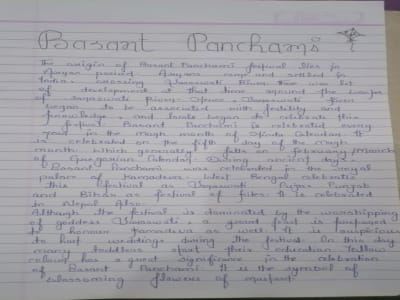 Basant Panchami
The origin of Basant Panchami festival lies in
Aryan period. Aryans came and settled in
India crossing Saraswati River. There was lot
of development at that time around the banks
of Saraswati River. Hence, Saraswati River
began to be associated with fertility and
knowledge and locals began to celebrate this
festival. Basant Panchami is celebrated every
year in the magh month of Hindu Calendar. It
is celebrated on the fifth day of the magh
month which generally falls on february/march
of Gregorian Calendar. During ancient days
Basant Panchami was celebrated in the royal
palace of Kamadeva. West Bengal celebrate
this festival as Saraswati Puja. Punjab
and Bihar as festival of kites. It is celebrated
in Nepal Also.
Although the festival is dominated by the worshipping
of goddess Saraswati, a grand feast is prepared
to honour Kamadeva as well. It is auspicious
to host weddings during the festival. On this day
many toddlers start their education. Yellow
colour has a great significance in the celebration
of Basant Panchami. It is the symbol of
blossoming flowers of mustard.